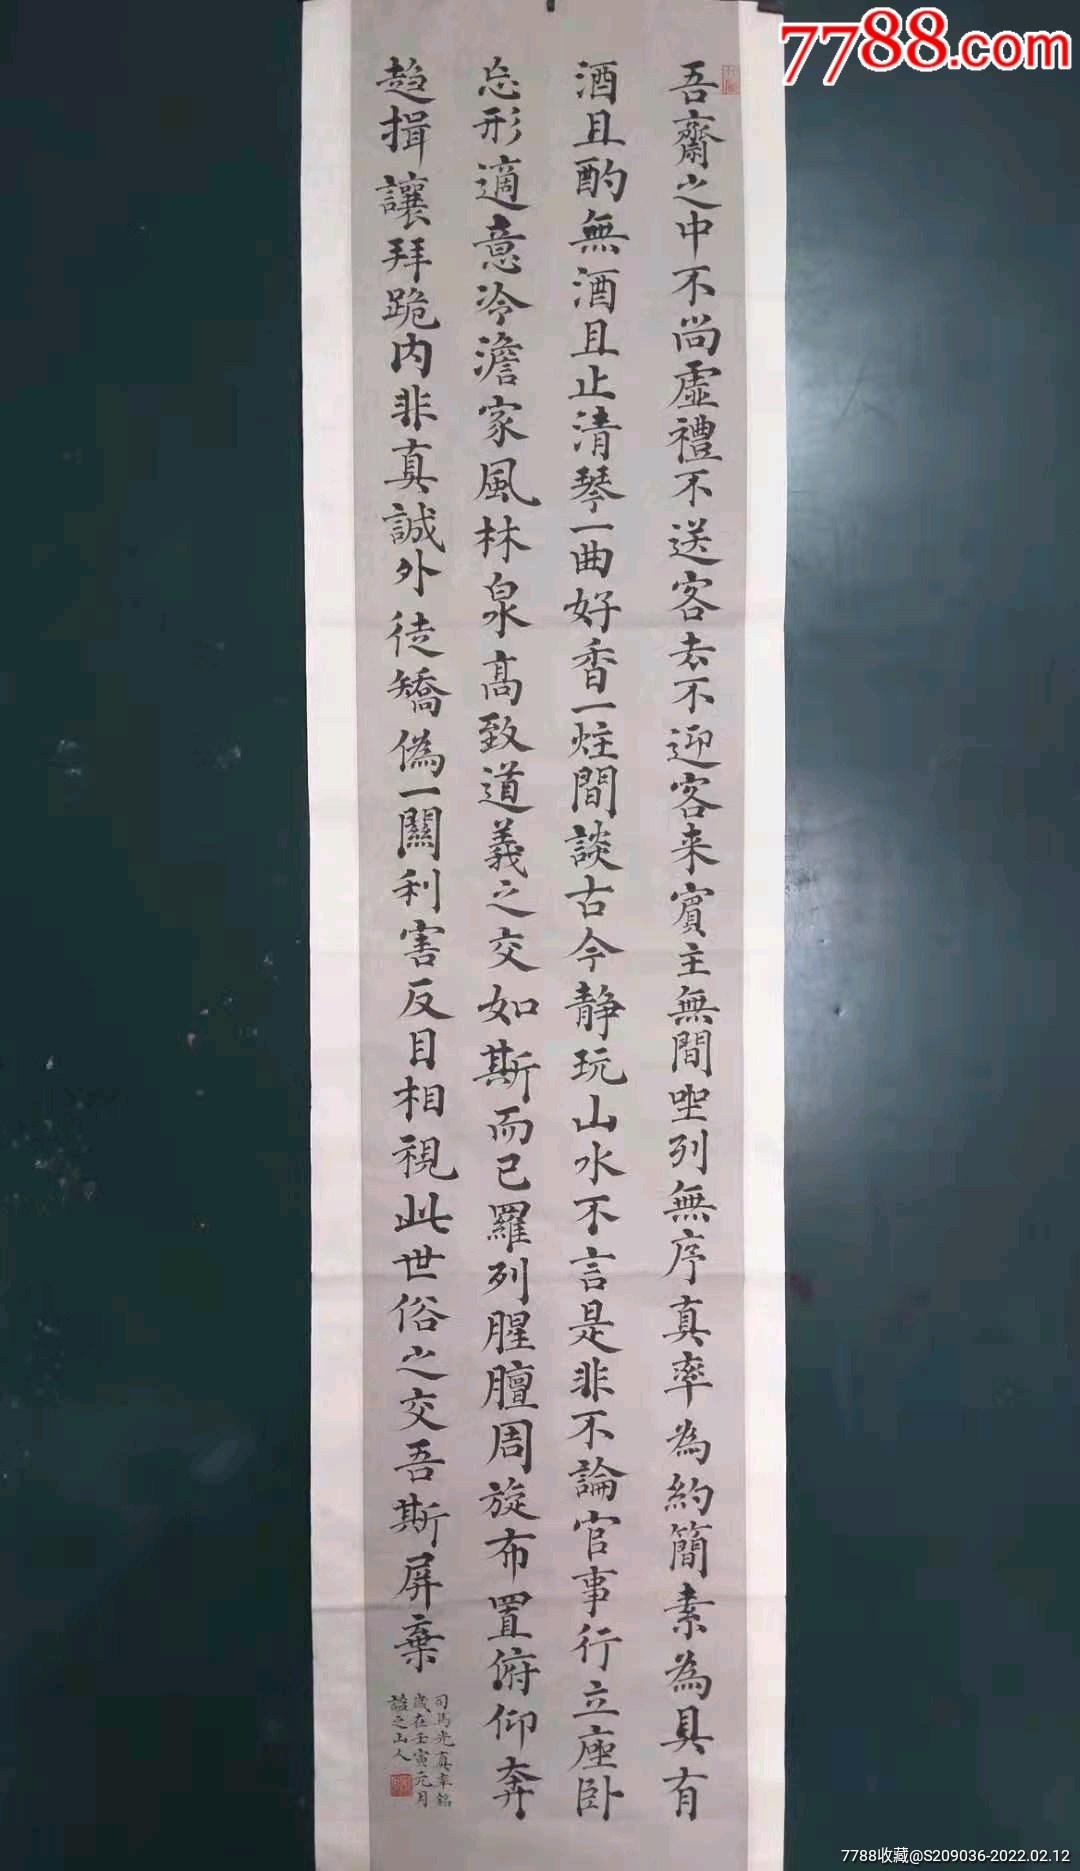 7788.com
吾齋之中不尚虛禮不送客去不迎客来賓主無間坐列無序真率為約簡素為具有
酒且酌無酒且止清琴一曲好香一炷間談古今静玩山水不言是非不論官事行立座卧
忘形適意冷澹家風林泉髙致道義之交如斯而已羅列腥膻周旋布置俯仰奔
趨揖讓拜跪内非真誠外徒矯偽一關利害反目相視此世俗之交吾斯屏棄
司馬光真率銘
歲在壬寅元月
謐之山人
7788收藏@S209036-2022.02.12